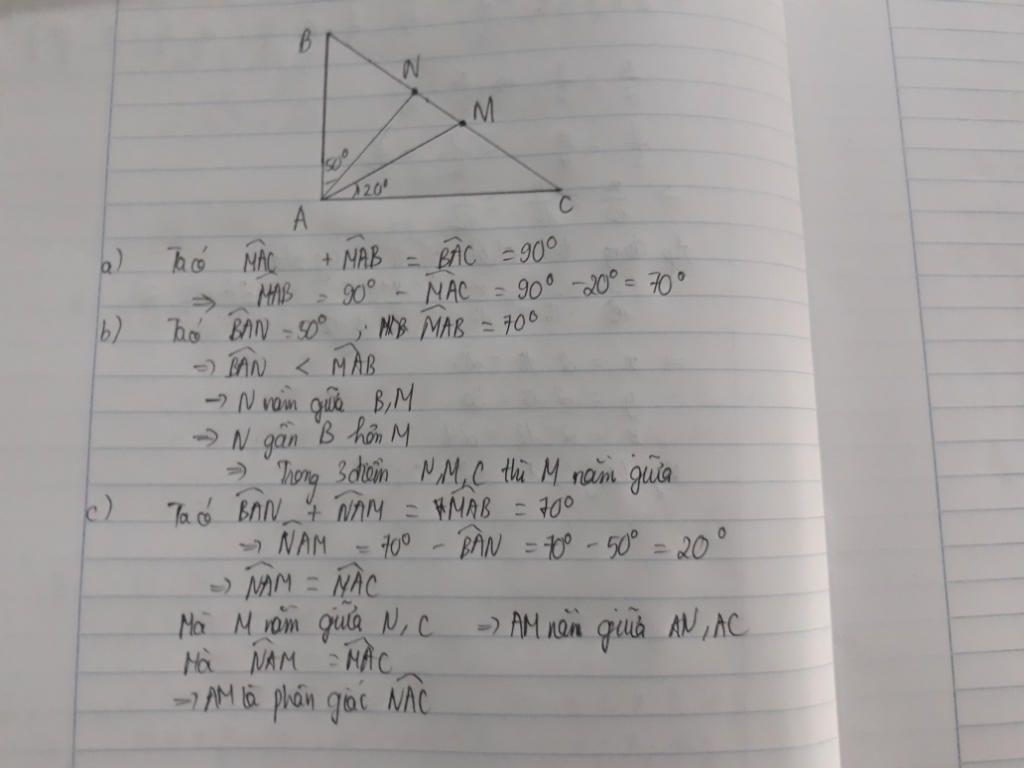 B
N
M
50°
20°
A
C
a) Ta có M̂AC + M̂AB = B̂AC = 90°
⇒ M̂AB = 90° - M̂AC = 90° - 20° = 70°
b) Ta có B̂AN = 50° ; M̂AB = 70°
⇒ B̂AN < M̂AB
→ N nằm giữa B,M
⇒ N gần B hơn M
⇒ Trong 3 điểm N,M,C thì M nằm giữa
c) Ta có B̂AN + N̂AM = M̂AB = 70°
⇒ N̂AM = 70° - B̂AN = 70° - 50° = 20°
⇒ N̂AM = M̂AC
Mà M nằm giữa N, C ⇒ AM nằm giữa AN, AC
Mà N̂AM = M̂AC
⇒ AM là phân giác N̂AC